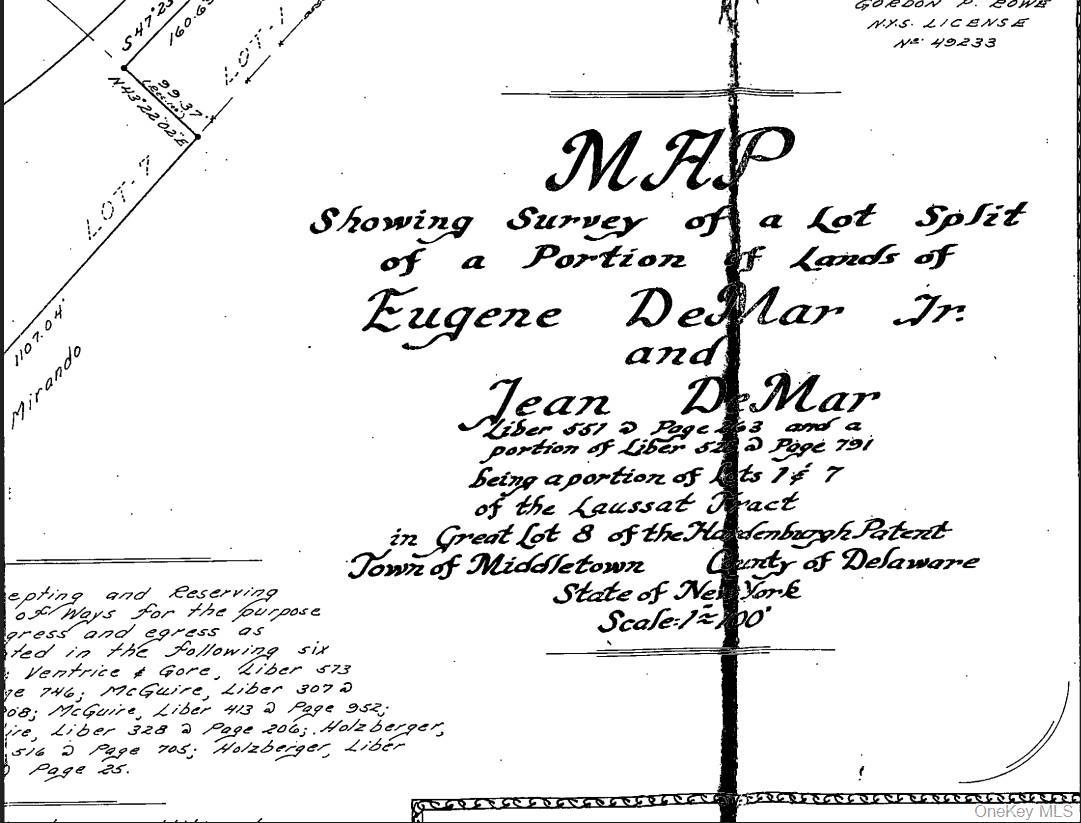 GORDON P. ROWE
N.Y.S. LICENSE
Nº: 49233
160.69
LOT-1
99.37'
N43°22'02"E
LOT-7
1107.04'
Mirando
MAP
Showing Survey of a Lot Split
of a Portion of Lands of
Eugene DeMar Jr.
and
Jean DeMar
Liber 551 @ Page 263 and a
portion of Liber @ Page 791
being a portion of Lots 1 & 7
of the Laussat Tract
in Great Lot 8 of the Hardenburgh Patent
Town of Middletown County of Delaware
State of New York
Scale: 1"=100'
epting and Reserving
of Ways for the purpose
gress and egress as
ted in the following six
; Ventrice & Gore, Liber 573
ge 746; McGuire, Liber 307 @
08; McGuire, Liber 413 @ Page 952;
ire, Liber 328 @ Page 206; Holzberger,
516 @ Page 705; Holzberger, Liber
@ Page 25.
OneKey MLS